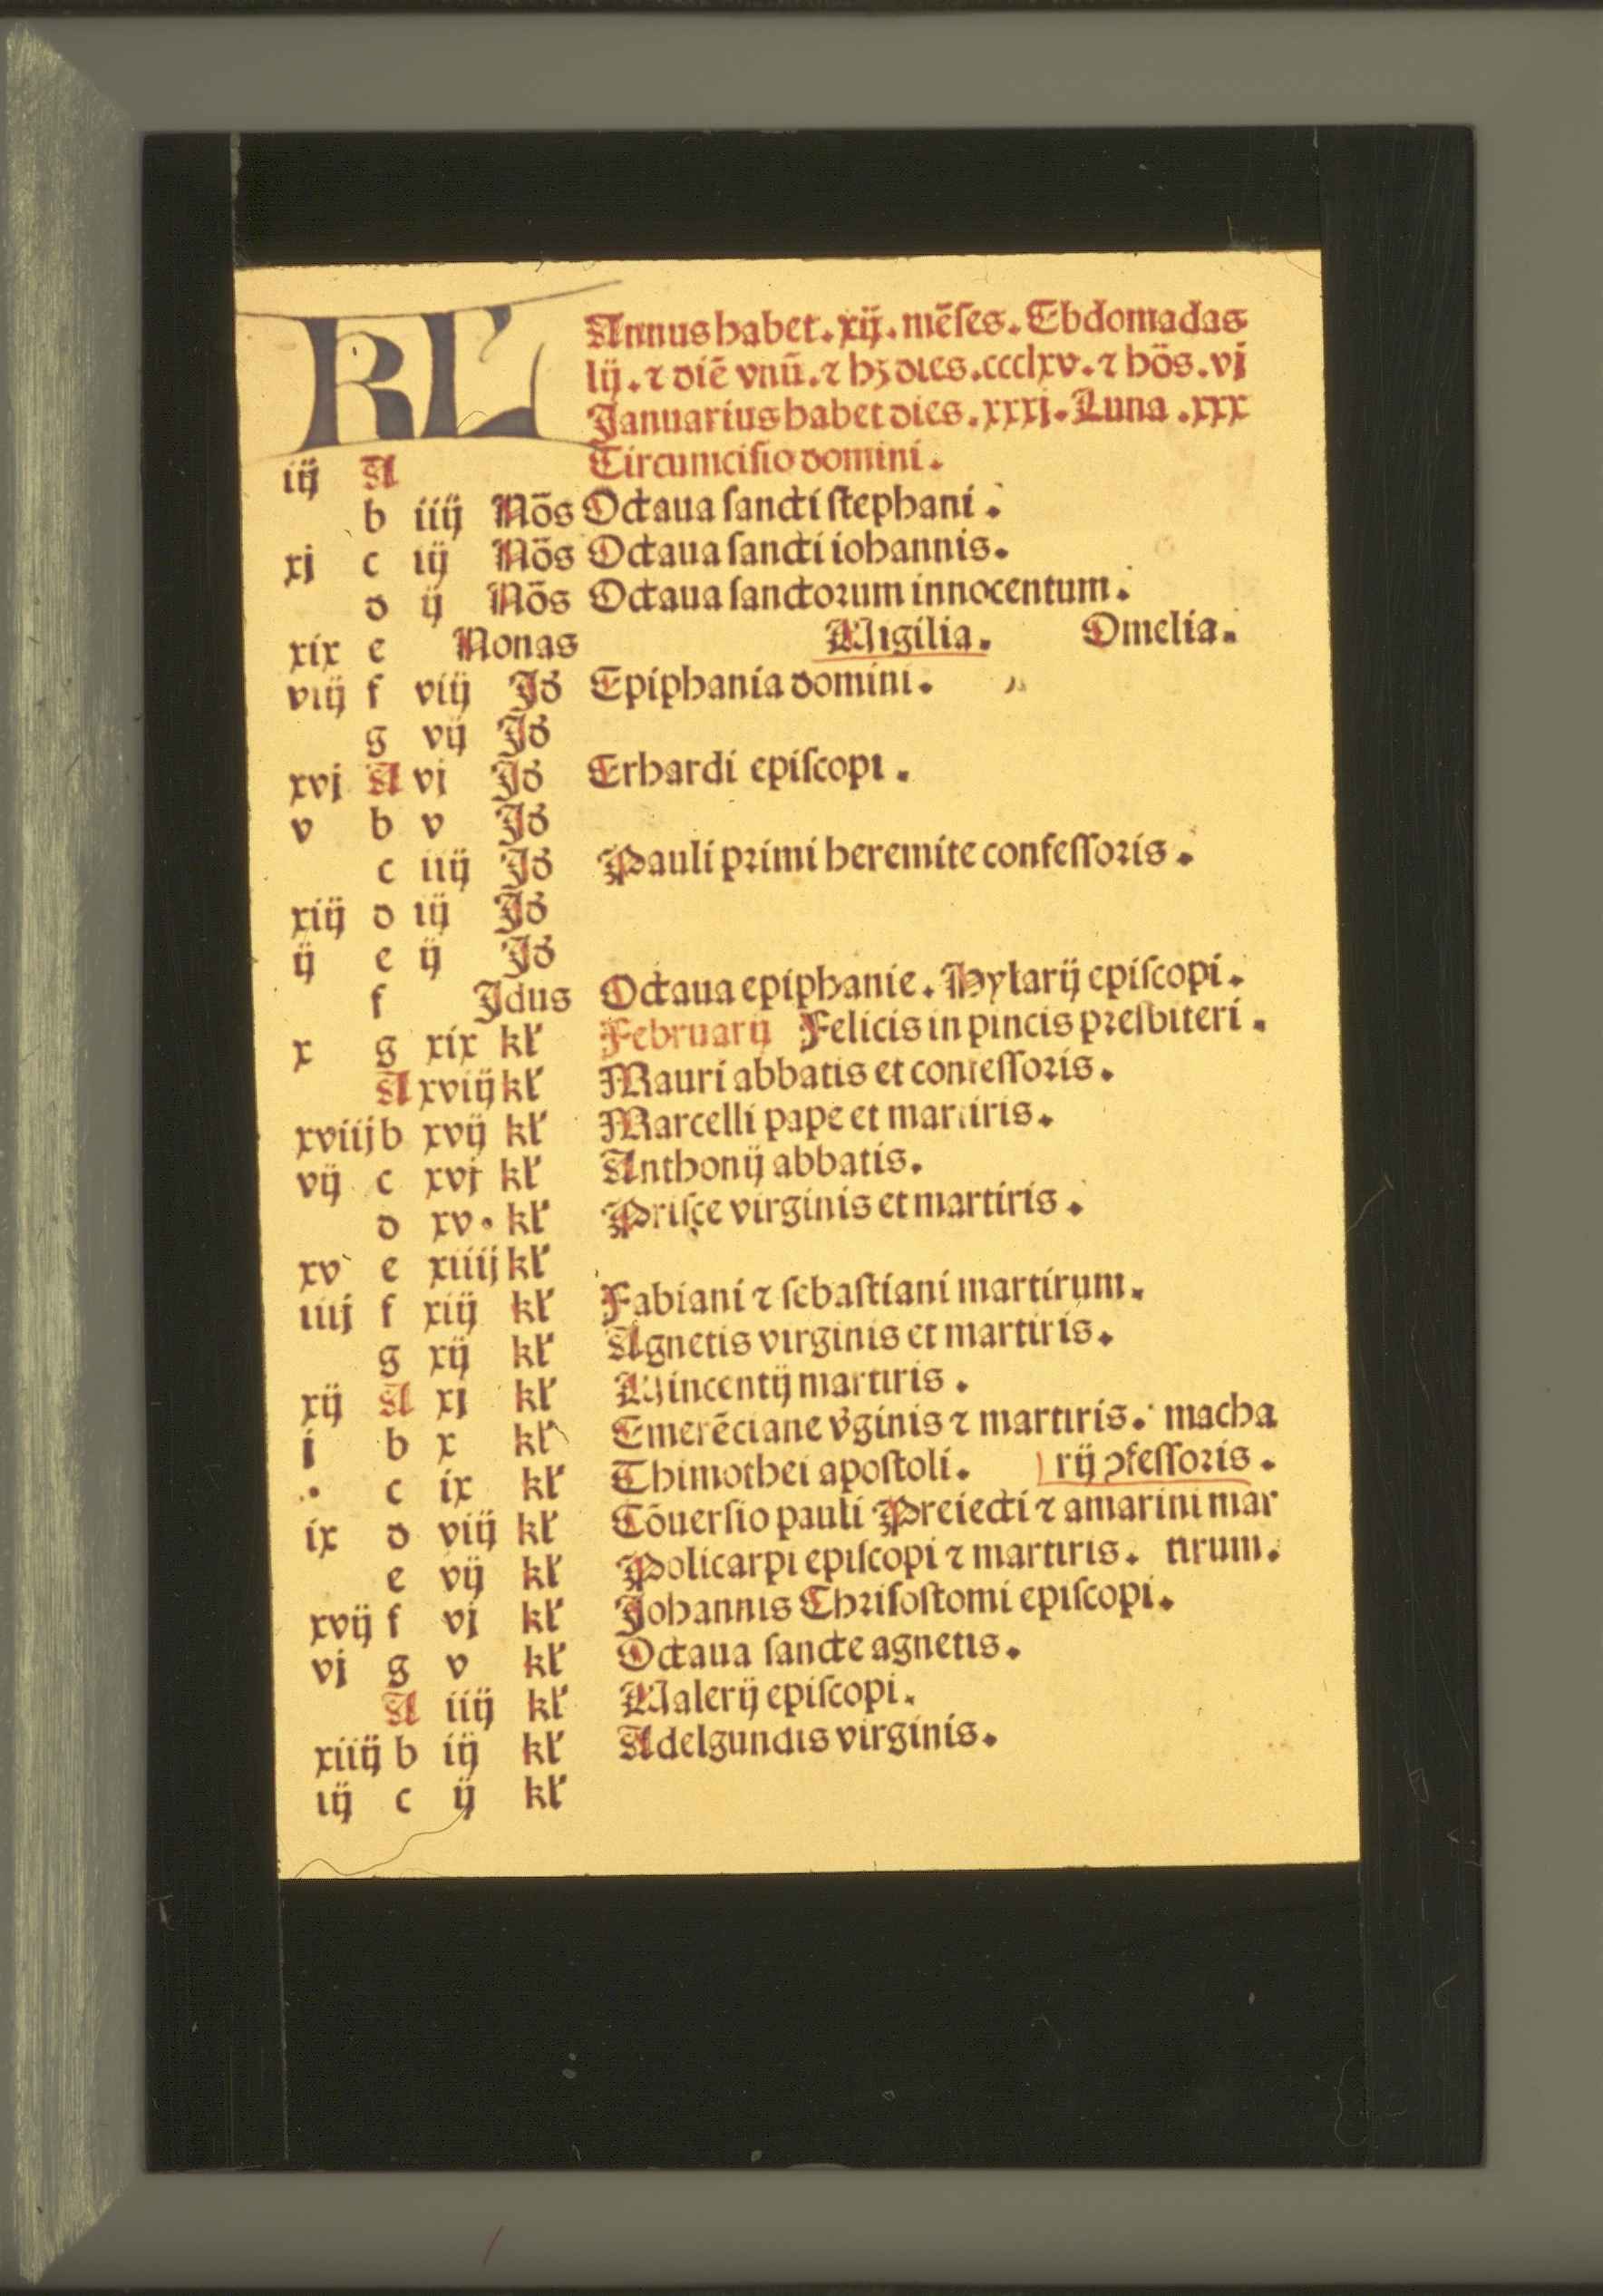 KL Annus habet. xij. mēses. Ebdomadas
lij. ⁊ diē vnū. ⁊ hꝫ dies. ccclxv. ⁊ hōs. vj
Januarius habet dies. xxxj. Luna. xxx
iij A Circumcisio domini.
b iiij Nōs Octaua sancti stephani.
xj c iij Nōs Octaua sancti iohannis.
d ij Nōs Octaua sanctorum innocentum.
xix e Nonas Uigilia. Omelia.
viij f viij Jd Epiphania domini.
g vij Jd
xvj A vj Jd Erhardi episcopi.
v b v Jd
c iiij Jd Pauli primi heremite confessoris.
xiij d iij Jd
ij e ij Jd
f Jdus Octaua epiphanie. Hylarij episcopi.
x g xix kl' Februarij Felicis in pincis presbiteri.
A xviij kl' Mauri abbatis et confessoris.
xviij b xvij kl' Marcelli pape et martiris.
vij c xvj kl' Anthonij abbatis.
d xv. kl' Prisce virginis et martiris.
xv e xiiij kl'
iiij f xiij kl' Fabiani ⁊ sebastiani martirum.
g xij kl' Agnetis virginis et martiris.
xij A xj kl' Uincentij martiris.
j b x kl' Emerēciane v̄ginis ⁊ martiris. macha
c ix kl' Thimothei apostoli. rij ꝯfessoris.
ix d viij kl' Cōuersio pauli Preiecti ⁊ amarini mar
e vij kl' Policarpi episcopi ⁊ martiris. tirum.
xvij f vj kl' Johannis Chrisostomi episcopi.
vj g v kl' Octaua sancte agnetis.
A iiij kl' Ualerij episcopi.
xiiij b iij kl' Adelgundis virginis.
iij c ij kl'